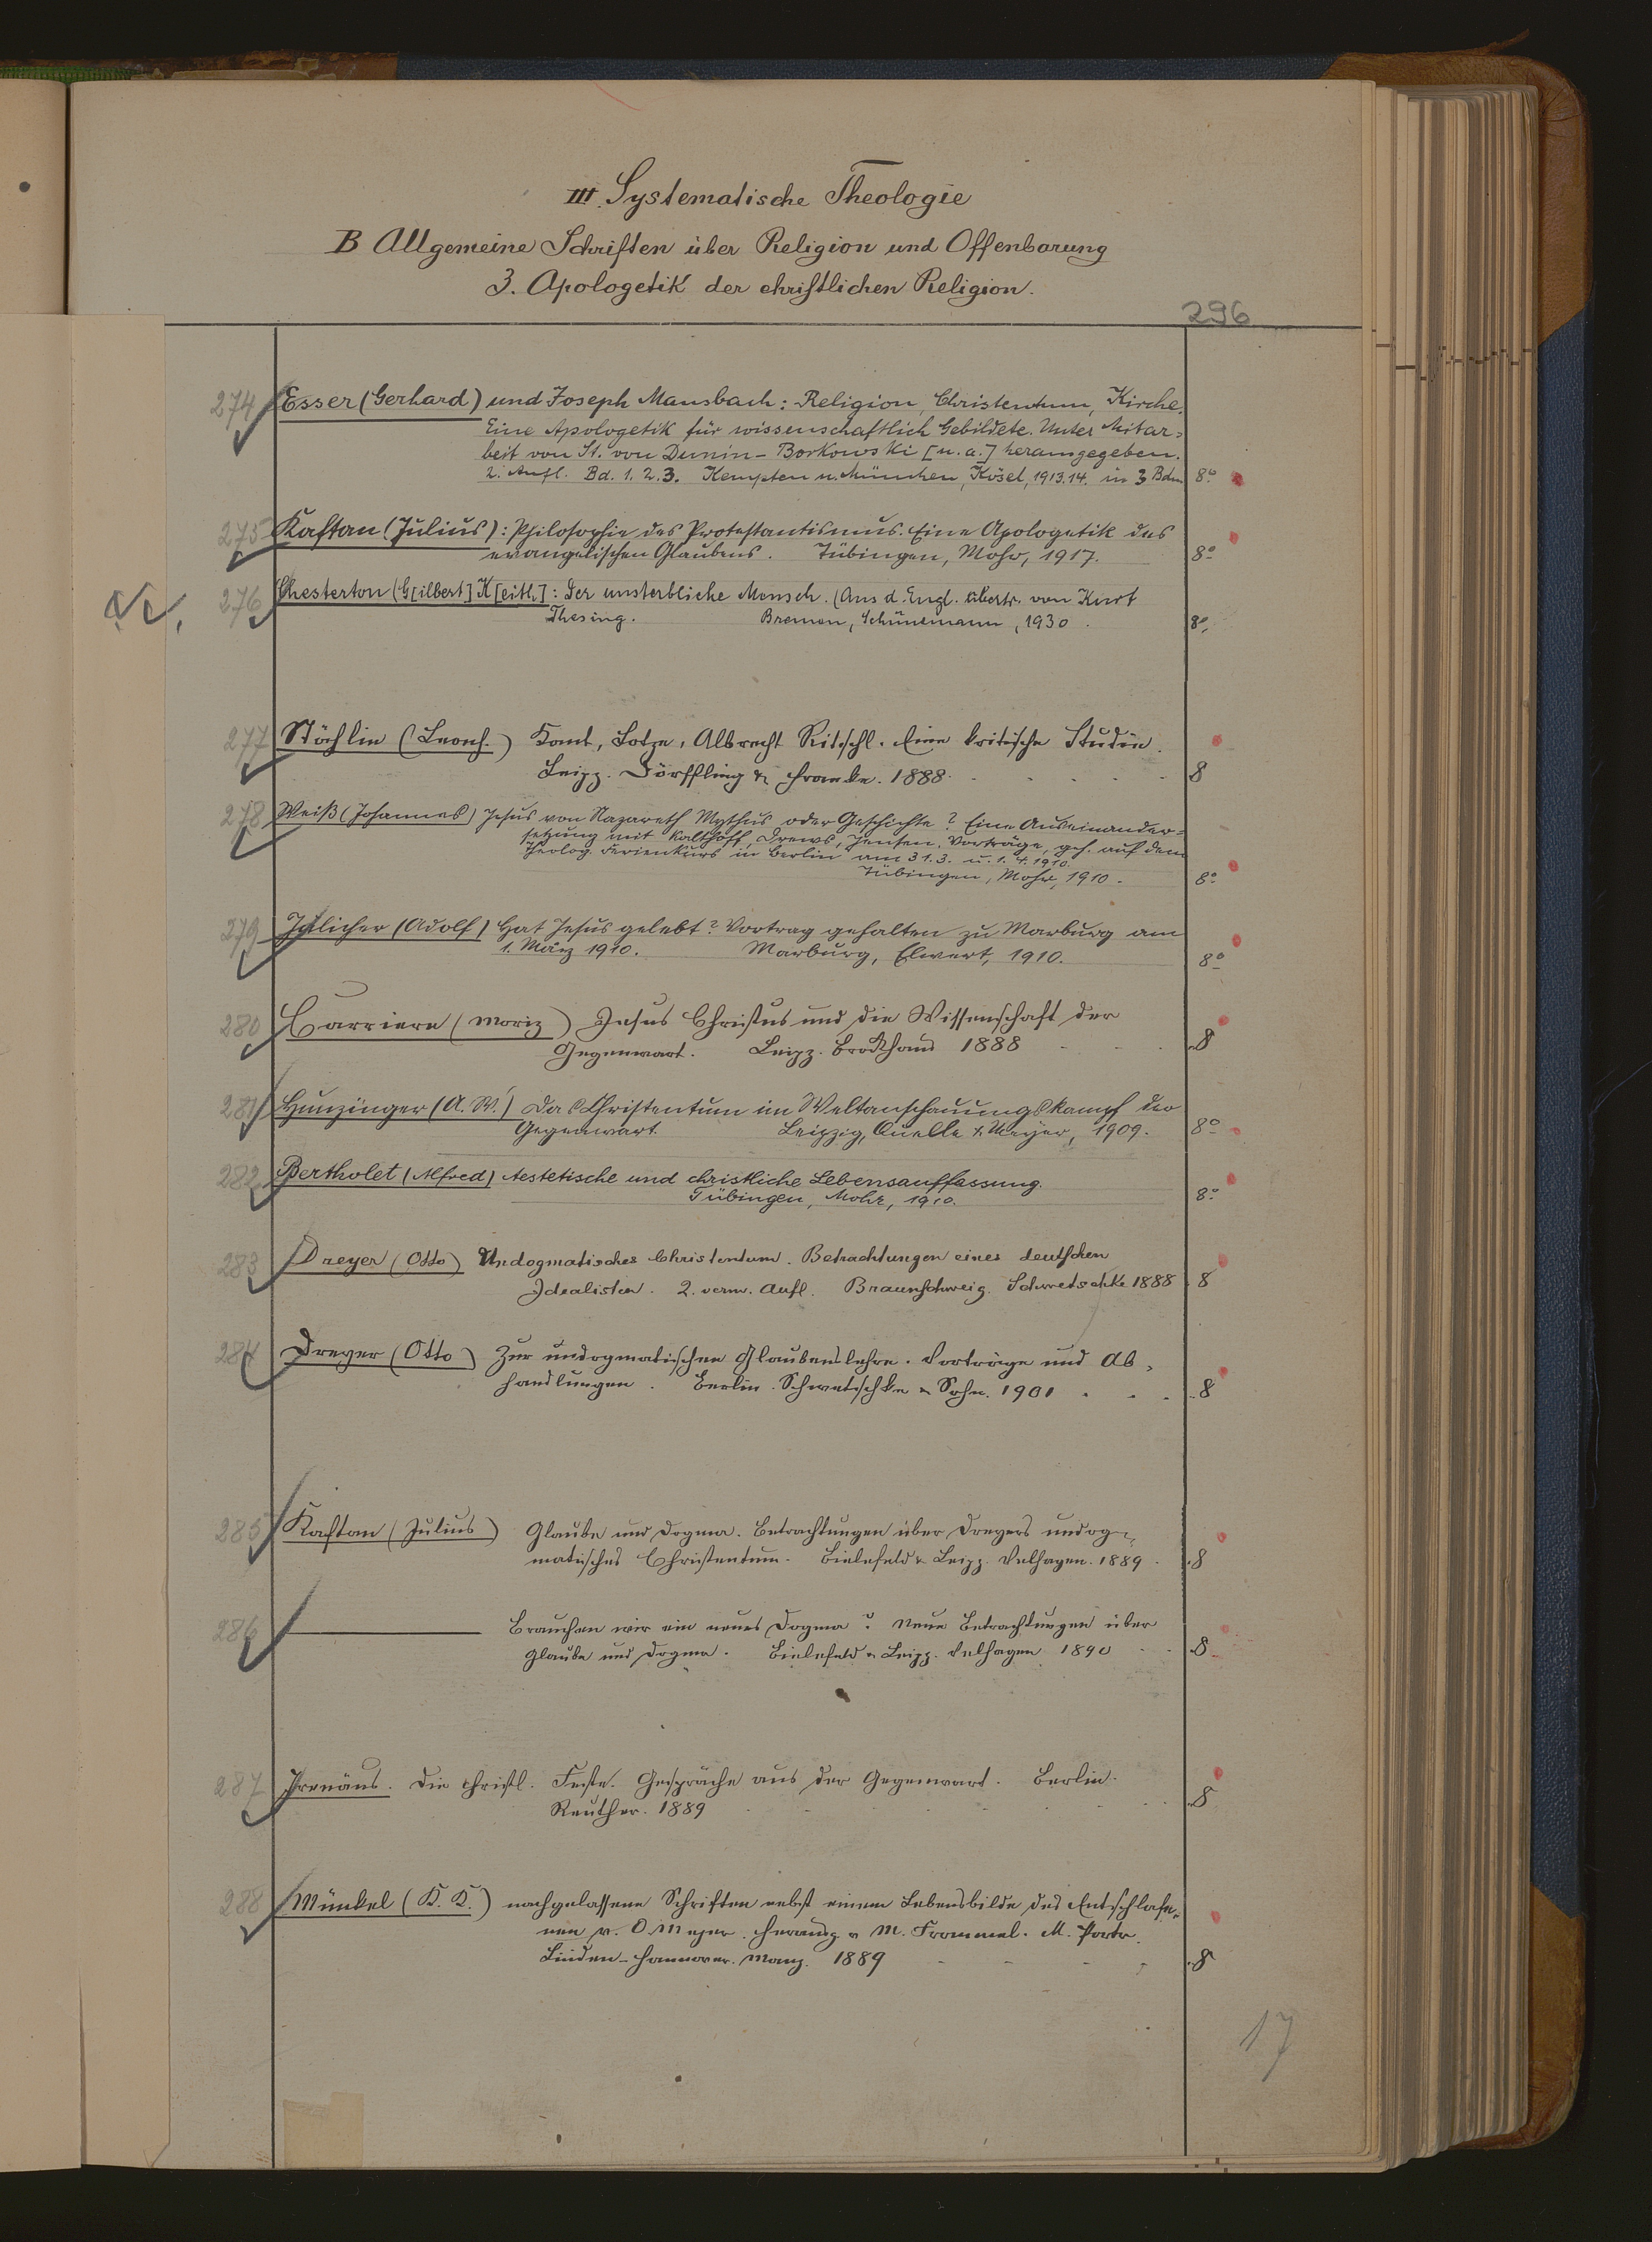 III. Systematische Theologie
B Allgemeine Schriften über Religion und Offenbarung
3. Apologetik der christlichen Religion.
296
274 Esser (Gerhard) und Joseph Mausbach: Religion, Christentum, Kirche.
Eine Apologetik für wissenschaftlich Gebildete. Unter Mitar=
beit von St. von Dunin-Borkowski [u. a.] herausgegeben.
2. Aufl. Bd. 1. 2. 3. Kempten u. München, Kösel, 1913.14. in 3 Bdn 8°
275 Kaftan (Julius): Philosophie des Protestantismus. Eine Apologetik des
evangelischen Glaubens. Tübingen, Mohr, 1917. 8°
276 Chesterton (G[ilbert] K[eith]: Der unsterbliche Mensch. (Aus d. Engl. übertr. von Kurt
Thesing. Bremen, Schünemann, 1930. 8°
277 Stählin (Leonh.) Kant, Lotze, Albrecht Ritschl. Eine kritische Studie.
Leipz. Dörffling & Franke. 1888. 8
278 Weiß (Johannes) Jesus von Nazareth Mythus oder Geschichte? Eine Auseinander=
setzung mit Kalthoff, Drews, Jensen. Vorträge, geh. auf dem
Theolog. Ferienkurs in Berlin am 31.3. u. 1.4.1910.
Tübingen, Mohr, 1910. 8°
279 Jülicher (Adolf) Hat Jesus gelebt? Vortrag gehalten zu Marburg am
1. März 1910. Marburg, Elwert, 1910. 8°
280 Carriere (Moriz) Jesus Christus und die Wissenschaft der
Gegenwart. Leipz. Brockhaus 1888 8
281 Hunzinger (A. W.) Das Christentum im Weltanschauungskampf der
Gegenwart. Leipzig, Quelle & Meyer, 1909. 8°
282 Bertholet (Alfred) Aestetische und christliche Lebensauffassung.
Tübingen, Mohr, 1910. 8°
283 Dreyer (Otto) Undogmatisches Christentum. Betrachtungen eines deutschen
Idealisten. 2. verm. Aufl. Braunschweig. Schwetschke 1888 8
284 Dreyer (Otto) Zur undogmatischen Glaubenslehre. Vorträge und Ab=
handlungen. Berlin. Schwetschke & Sohn. 1901 8
285 Kaftan (Julius) Glaube und Dogma. Betrachtungen über Dreyers undog=
matisches Christentum. Bielefeld & Leipz. Velhagen. 1889. 8
286 Brauchen wir ein neues Dogma? Neue Betrachtungen über
Glaube und Dogma. Bielefeld & Leipz. Velhagen 1890 8
287 Irenäus. Die christl. Feste. Gespräche aus der Gegenwart. Berlin.
Reuther. 1889 8
288 Münkel (K. K.) nachgelassene Schriften nebst einem Lebensbilde des Entschlafe=
nen v. O. Meyer. Herausg v M. Frommel. M. Portr.
Linden-Hannover. Manz. 1889 8
17